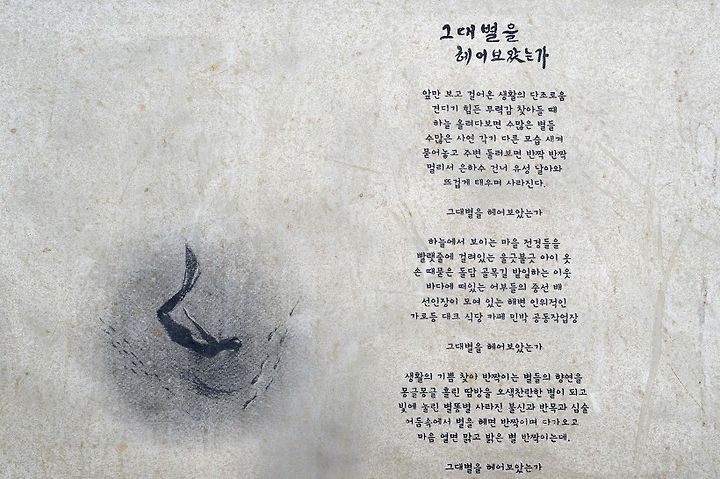 그대 별을
헤어보았는가
앞만 보고 걸어온 생활의 단조로움
견디기 힘든 무력감 찾아들 때
하늘 올려다보면 수많은 별들
수많은 사연 각기 다른 모습 새겨
묻어놓고 주변 둘러보면 반짝 반짝
멀리서 은하수 건너 유성 날아와
뜨겁게 태우며 사라진다.
그대별을 헤어보았는가
하늘에서 보이는 마을 전경들을
빨랫줄에 걸려있는 울긋불긋 아이 옷
손 때묻은 돌담 골목길 발일하는 이웃
바다에 떠있는 어부들의 중선 배
선인장이 모여 있는 해변 인위적인
가로등 데크 식당 카페 민박 공동작업장
그대별을 헤어보았는가
생활의 기쁨 찾아 반짝이는 별들의 향연을
몽글몽글 흘린 땀방울 오색찬란한 별이 되고
빛에 눌린 별똥별 사라진 불신과 반목과 심술
어둠속에서 별을 헤면 반짝이며 다가오고
마음 열면 맑고 밝은 별 반짝이는데.
그대별을 헤어보았는가